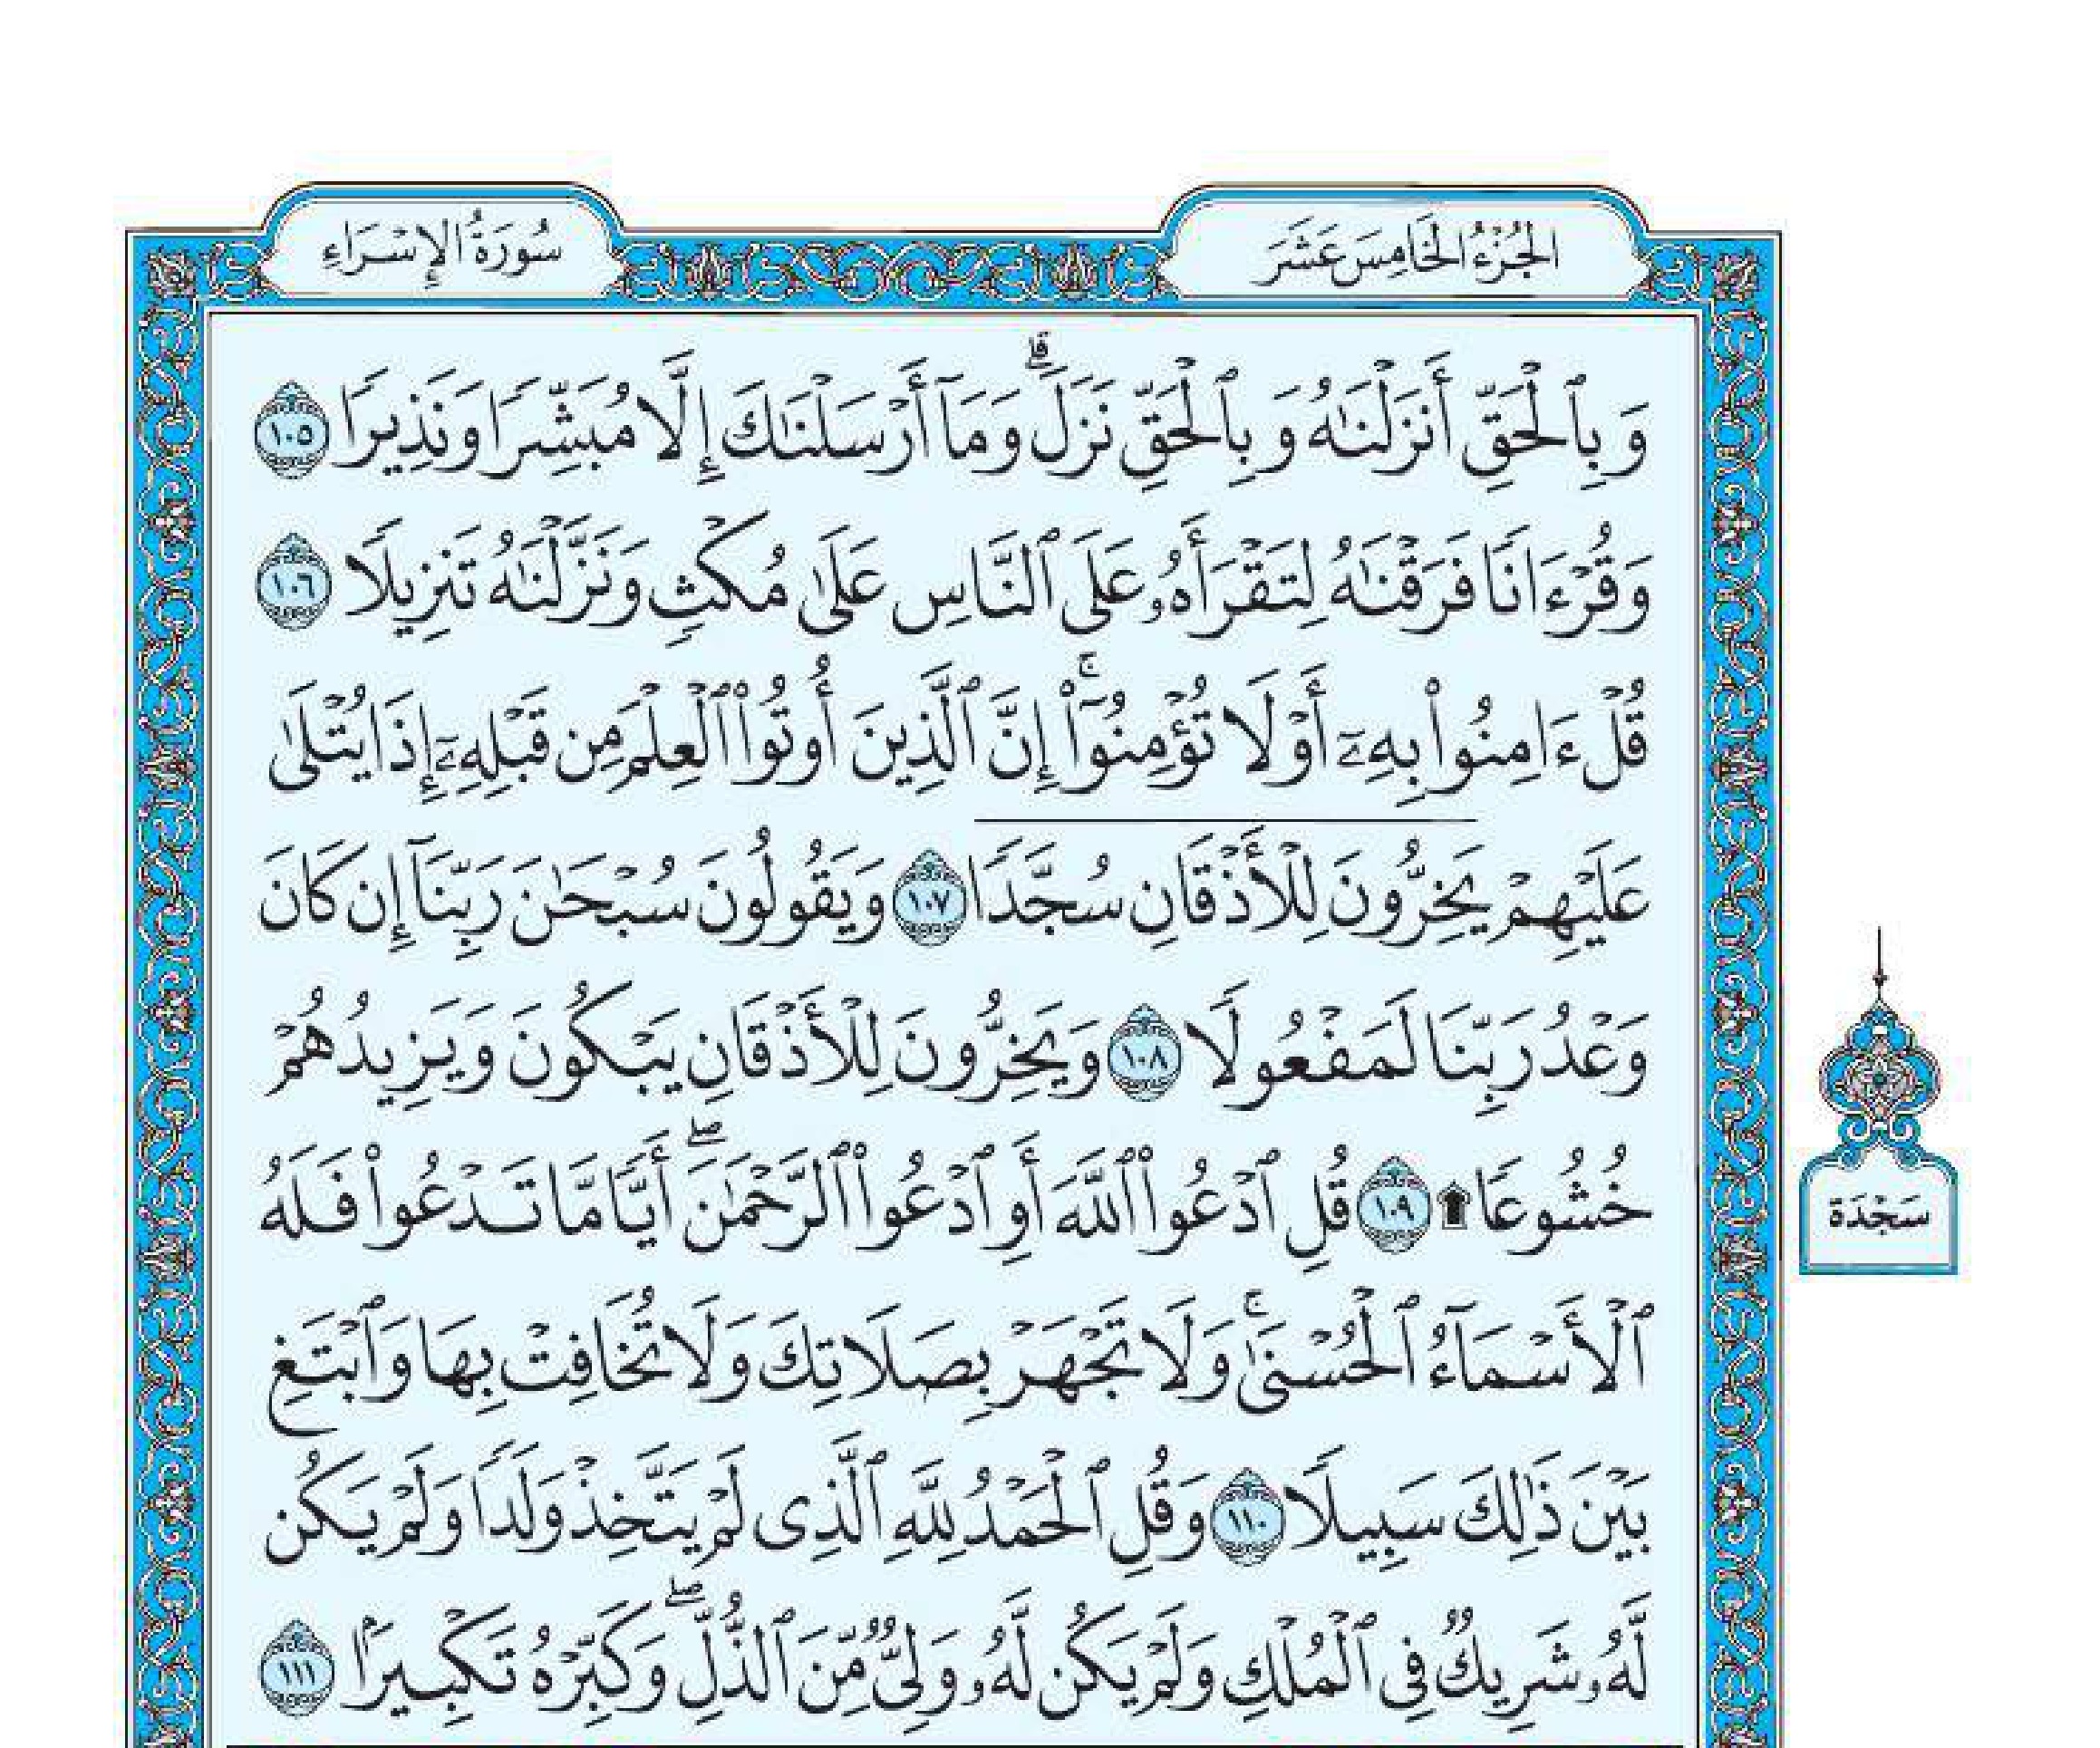 الجُزْءُ الخَامِسَ عَشَرَ
سُورَةُ الإِسْرَاءِ
وَبِٱلْحَقِّ أَنزَلْنَٰهُ وَبِٱلْحَقِّ نَزَلَۗ وَمَآ أَرْسَلْنَٰكَ إِلَّا مُبَشِّرًا وَنَذِيرًا ١٠٥
وَقُرْءَانًا فَرَقْنَٰهُ لِتَقْرَأَهُۥ عَلَى ٱلنَّاسِ عَلَىٰ مُكْثٍ وَنَزَّلْنَٰهُ تَنزِيلًا ١٠٦
قُلْ ءَامِنُوا۟ بِهِۦٓ أَوْ لَا تُؤْمِنُوٓا۟ۚ إِنَّ ٱلَّذِينَ أُوتُوا۟ ٱلْعِلْمَ مِن قَبْلِهِۦٓ إِذَا يُتْلَىٰ
عَلَيْهِمْ يَخِرُّونَ لِلْأَذْقَانِ سُجَّدًا ١٠٧ وَيَقُولُونَ سُبْحَٰنَ رَبِّنَآ إِن كَانَ
وَعْدُ رَبِّنَا لَمَفْعُولًا ١٠٨ وَيَخِرُّونَ لِلْأَذْقَانِ يَبْكُونَ وَيَزِيدُهُمْ
خُشُوعًا ۩ ١٠٩ قُلِ ٱدْعُوا۟ ٱللَّهَ أَوِ ٱدْعُوا۟ ٱلرَّحْمَٰنَۖ أَيًّا مَّا تَدْعُوا۟ فَلَهُ
ٱلْأَسْمَآءُ ٱلْحُسْنَىٰۚ وَلَا تَجْهَرْ بِصَلَاتِكَ وَلَا تُخَافِتْ بِهَا وَٱبْتَغِ
بَيْنَ ذَٰلِكَ سَبِيلًا ١١٠ وَقُلِ ٱلْحَمْدُ لِلَّهِ ٱلَّذِى لَمْ يَتَّخِذْ وَلَدًا وَلَمْ يَكُن
لَّهُۥ شَرِيكٌ فِى ٱلْمُلْكِ وَلَمْ يَكُن لَّهُۥ وَلِىٌّ مِّنَ ٱلذُّلِّۖ وَكَبِّرْهُ تَكْبِيرًۢا ١١١
سَجْدَة